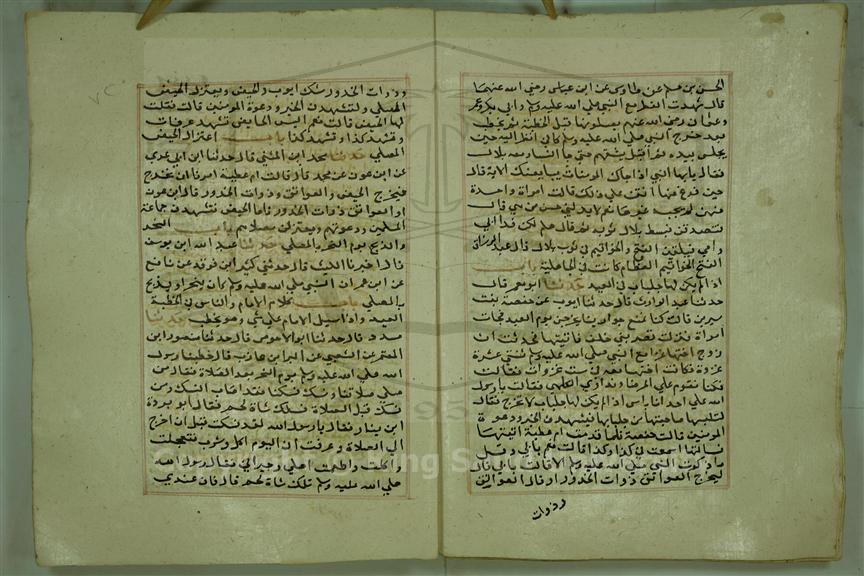 الحسن بن مسلم عن طاوس عن ابن عباس رضي الله عنهما
قال شهدت الفطر مع النبي صلي الله عليه وسلم وابي بكر وعمر
وعثمان رضي الله عنهم يصلونها قبل الخطبة ثم يخطب
بعد خرج النبي صلي الله عليه وسلم كاني انظر اليه حين
يجلس بيده ثم اقبل يشقهم حتي جا النسا معه بلال
فقال يايها النبي اذا جاك المومنات يبايعنك الاية ثم قال
حين فرغ منها آنتن علي ذلك قالت امراة واحدة
منهن لم يجبه غيرها نعم لا يدري حسن من هي قال
فتصدقن فبسط بلال ثوبه ثم قال هلم لكن فدا ابي
وامي فيلقين الفتخ والخواتيم في ثوب بلال قال عبد الرزاق
الفتخ الخواتيم العظام كانت في الجاهلية باب
اذا لم يكن لها جلباب في العيد حدثنا ابو معمر قال
حدثنا عبد الوارث قال حدثنا ايوب عن حفصة بنت
سيرين قالت كنا نمنع جوارينا يخرجن يوم العيد فجات
امراة فنزلت قصر بني خلف فاتيتها فحدثت ان
زوج اختها غزا مع النبي صلي الله عليه وسلم ثنتي عشرة
غزوة فكانت اختها معه في ست غزوات فقالت
فكنا نقوم علي المرضا ونداوي الكلمي فقالت يا رسول
الله علي احدانا باس اذا لم يكن لها جلباب لا تخرج فقال
لتلبسها صاحبتها من جلبابها فيشهدن الخير ودعوة
المومنين قالت حفصة فلما قدمت ام عطية اتيتها
فسالتها اسمعت في كذا وكذا قالت نعم بابي وقل
ما ذكرت النبي صلي الله عليه وسلم الا قالت بابي قال
ليخرج العواتق ذوات الخدور او قال العواتق
وذوات
وذوات الخدور شك ايوب والحيض ويعتزل الحيض
المصلي ولتشهدن الخير ودعوة المومنين قالت فقلت
لها الحيض قالت نعم اليس الحايض تشهد عرفات
وتشهد كذا وتشهد كذا باب اعتزال الحيض
المصلي حدثنا محمد ابن المثني قال حدثنا ابن ابي عدي
عن ابن عون عن محمد قال قالت ام عطية امرنا ان نخرج
فنخرج الحيض والعواتق وذوات الخدور قال ابن عون
او العواتق ذوات الخدور فاما الحيض فتشهدن جماعة
المسلمين ودعوتهم ويعتزلن مصلاهم باب النحر
والذبح يوم النحر بالمصلي حدثنا عبد الله ابن يوسف
قال اخبرنا الليث قال حدثني كثير ابن فرقد عن نافع
عن ابن عمر ان النبي صلي الله عليه وسلم كان ينحر او يذبح
بالمصلي باب كلام الامام والناس في الخطبة
العيد واذا سيل الامام علي شي وهو يخطب حدثنا
مسدد قال حدثنا ابو الاحوص قال حدثنا منصور ابن
المعتمر عن الشعبي عن البرا بن عازب قال خطبنا رسول
الله صلي الله عليه وسلم يوم النحر بعد الصلاة فقال من
صلي صلاتنا ونسك نسكنا فقد اصاب النسك ومن
نسك قبل الصلاة فتلك شاة لحم فقال ابو بردة
ابن نيار فقال يا رسول الله لقد نسكت قبل ان اخرج
الي الصلاة وعرفت ان اليوم اكل وشرب فتعجلت
واكلت واطعمت اهلي وجيراني فقال رسول الله
صلي الله عليه وسلم تلك شاة لحم قال فان عندي